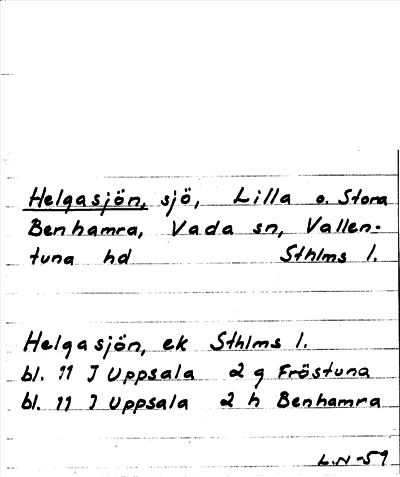 Helgasjön, sjö, Lilla o. Stora
Benhamra, Vada sn, Vallen-
tuna hd Sthlms l.
Helgasjön, ek Sthlms l.
bl. 11 I Uppsala 2 g Fröstuna
bl. 11 I Uppsala 2 h Benhamra
L.N -59